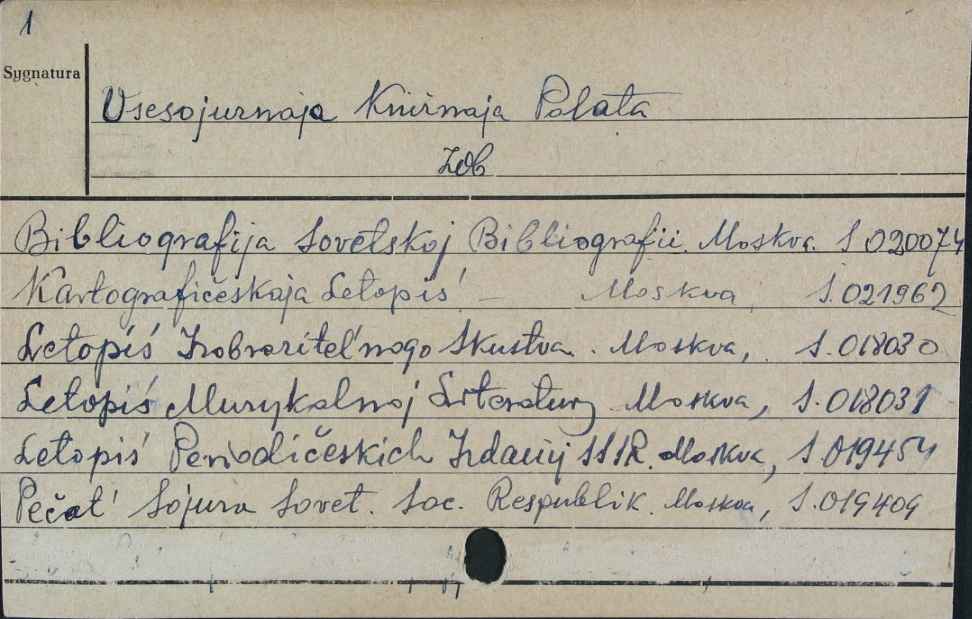 1
Sygnatura
Vsesojuznaja Knižnaja Palata
zob
Bibliografija Sovetskoj Bibliografii. Moskva. S.020074
Kartografičeskaja Letopis' — Moskva, S.021962
Letopiś Izobraziteľnogo Skustva. Moskva, S.018030
Letopiś Muzykalnoj Literatury Moskva, S.018031
Letopiś Periodičeskich Izdanij SSSR. Moskva, S.019454
Pečat' Sojuza Sovet. Soc. Respublik. Moskva, S.019409